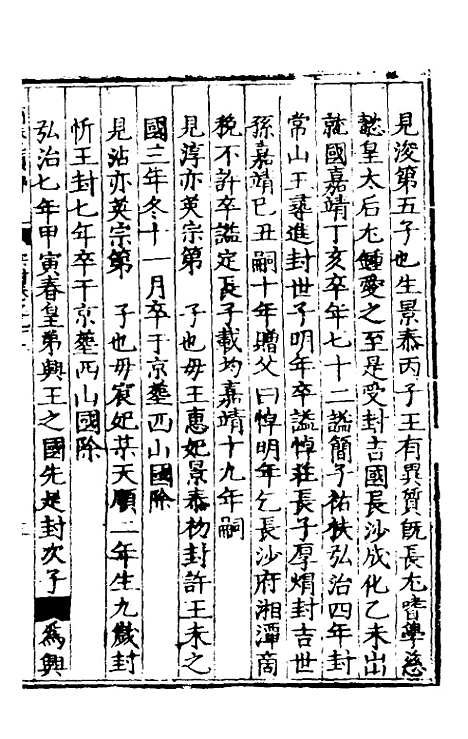 見浚第五子也生景泰丙子王有異質既長尤嗜學慈
懿皇太后尤鍾愛之至是受封吉國長沙成化乙未出
就國嘉靖丁亥卒年七十二謚簡子祐扶弘治四年封
常山王尋進封世子明年卒謚悼莊長子厚焆封吉世
孫嘉靖巳丑嗣十年贈父曰悼明年乞長沙府湘潭商
稅不許卒謚定長子載均嘉靖十九年嗣
見淳亦英宗第　子也毋王惠妃景泰初封許王未之
國三年冬十一月卒于京塟西山國除
見沾亦英宗第　子也毋宸妃某天順二年生九歲封
忻王封七年卒于京塟西山國除
弘治七年甲寅春皇弟興王之國先是封次子　為興